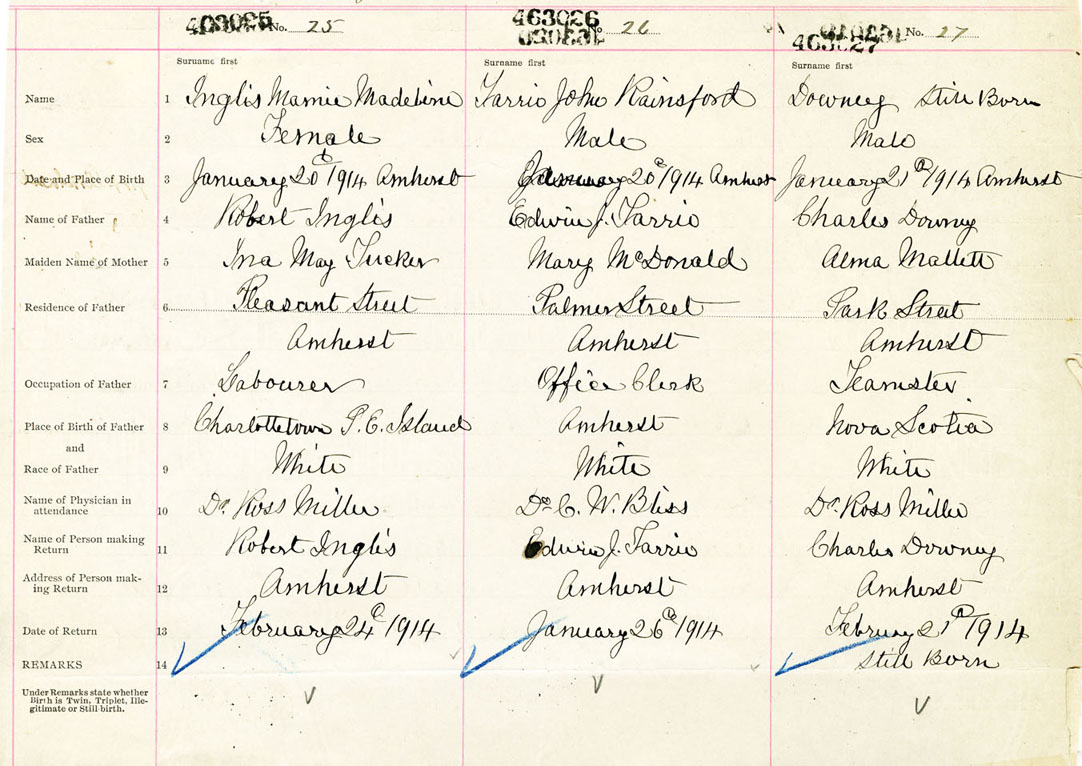 463025 No. 25
463026 No. 26
463027 No. 27
Surname first Surname first Surname first
Name 1 Inglis Mamie Madeline Tarrio John Rainsford Downey Still Born
Sex 2 Female Male Male
Date and Place of Birth 3 January 20th 1914 Amherst January 20th 1914 Amherst January 21st 1914 Amherst
Name of Father 4 Robert Inglis Edwin J. Tarrio Charles Downey
Maiden Name of Mother 5 Ina May Tucker Mary McDonald Alma Mallett
Residence of Father 6 Pleasant Street Palmer Street Park Street
Amherst Amherst Amherst
Occupation of Father 7 Labourer Office Clerk Teamster
Place of Birth of Father 8 Charlottetown P.E. Island Amherst Nova Scotia
and
Race of Father 9 White White White
Name of Physician in
attendance 10 Dr. Ross Miller Dr. C. W. Bliss Dr. Ross Miller
Name of Person making
Return 11 Robert Inglis Edwin J. Tarrio Charles Downey
Address of Person mak-
ing Return 12 Amherst Amherst Amherst
Date of Return 13 February 24th 1914 January 26th 1914 February 21st 1914
REMARKS 14 Still Born
Under Remarks state whether
Birth is Twin, Triplet, Ille-
gitimate or Still-birth.